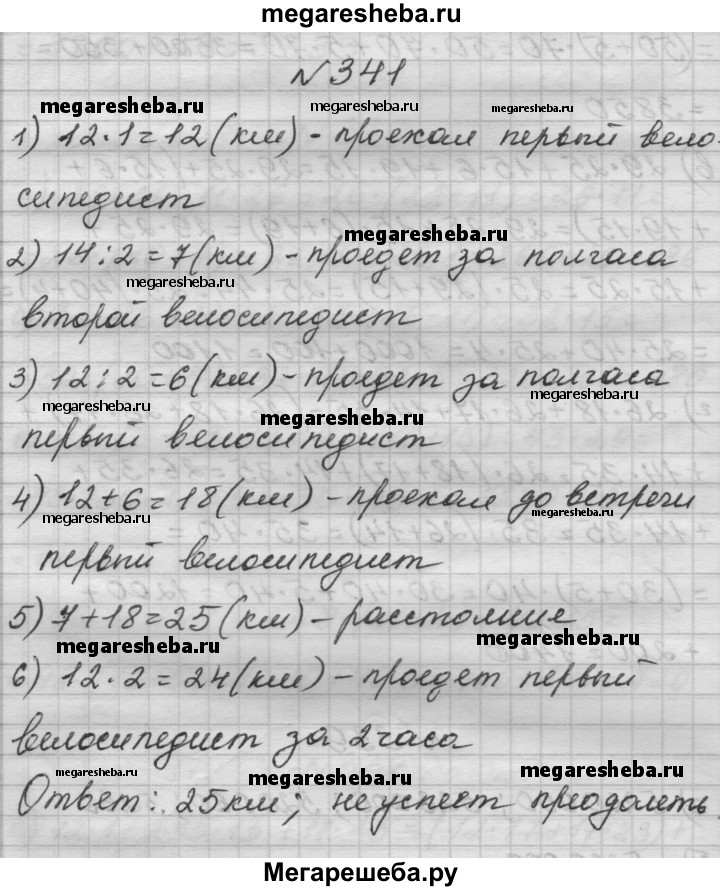 megaresheba.ru
№341
megaresheba.ru megaresheba.ru megaresheba.ru
1) 12·1=12(км) - проехал первый вело-
сипедист
megaresheba.ru
2) 14:2=7(км) - проедет за полчаса
megaresheba.ru
второй велосипедист
3) 12:2=6(км) - проедет за полчаса
megaresheba.ru
megaresheba.ru megaresheba.ru
первый велосипедист
4) 12+6=18(км) - проехал до встречи
megaresheba.ru megaresheba.ru
первый велосипедист
5) 7+18=25(км) - расстояние
megaresheba.ru megaresheba.ru
6) 12·2=24(км) - проедет первый
велосипедист за 2 часа
megaresheba.ru megaresheba.ru megaresheba.ru
Ответ: 25км; не успеет преодолеть.
megaresheba.ru megaresheba.ru
Мегарешеба.ру